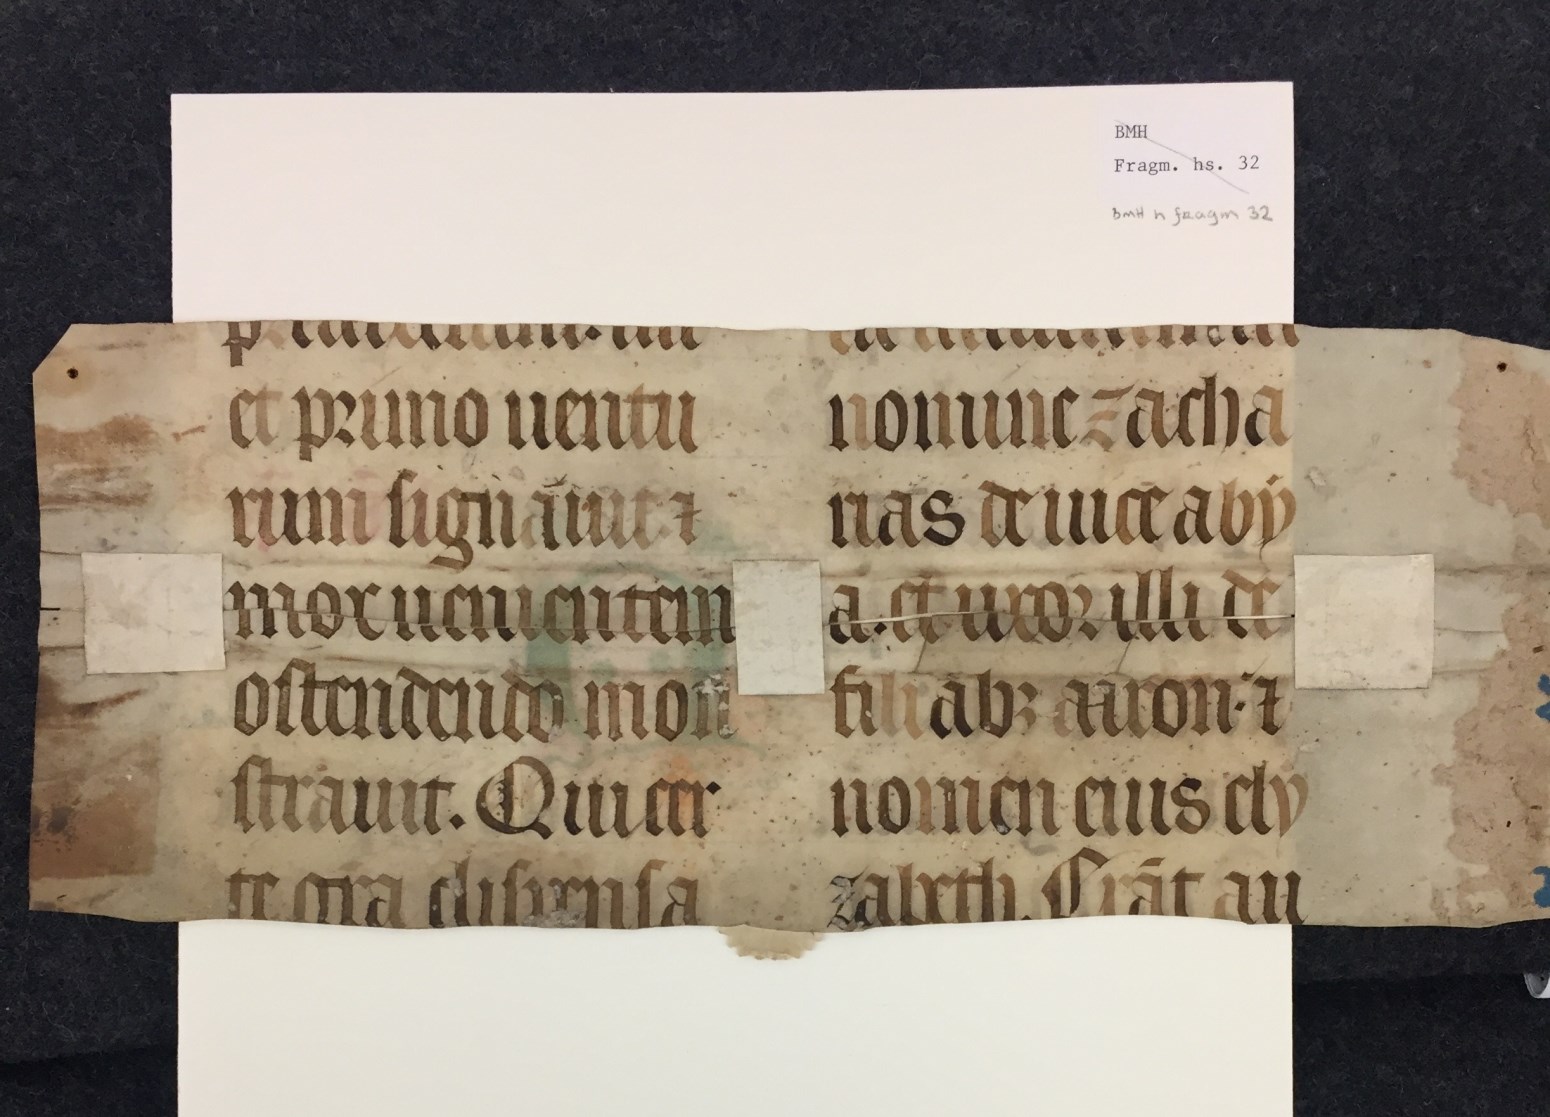 BMH
Fragm. hs. 32
BMH h fragm 32
et primo uentu
rum signauit ⁊
mox uenientem
ostendendo mon
strauit. Qui cer
te gr̄a dispensa
nomine zacha
rias de uice aby
a. et uxor illi de
filiabꝫ aaron. ⁊
nomen eius ely
zabeth. Erāt au